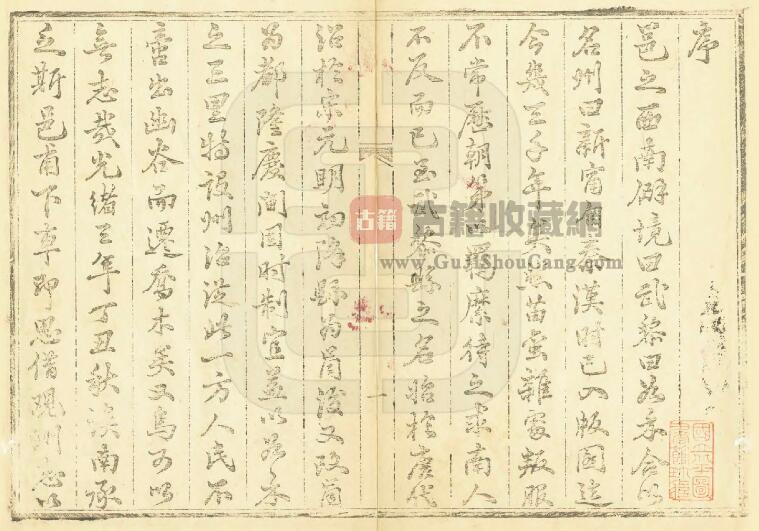 序
邕之西南僻境曰武黎曰思𠅤今以
名州曰新甯自秦漢時已入版圖迄
今幾三千年矣苗蠻雜處叛服
不常歷朝第以羈縻待之南人
不反而已至武黎縣之名昉於唐代
沿於宋元明初降縣為
為都隆慶間因時制宜並以思
之三里特設州治從此一方人民不
啻出幽谷而遷喬木矣又烏可以
無志哉光緒三年丁丑秋漢南承
乏斯邑甫下車即思借觀州志以
古籍
古籍收藏網
www.GuJiShouCang.com
一